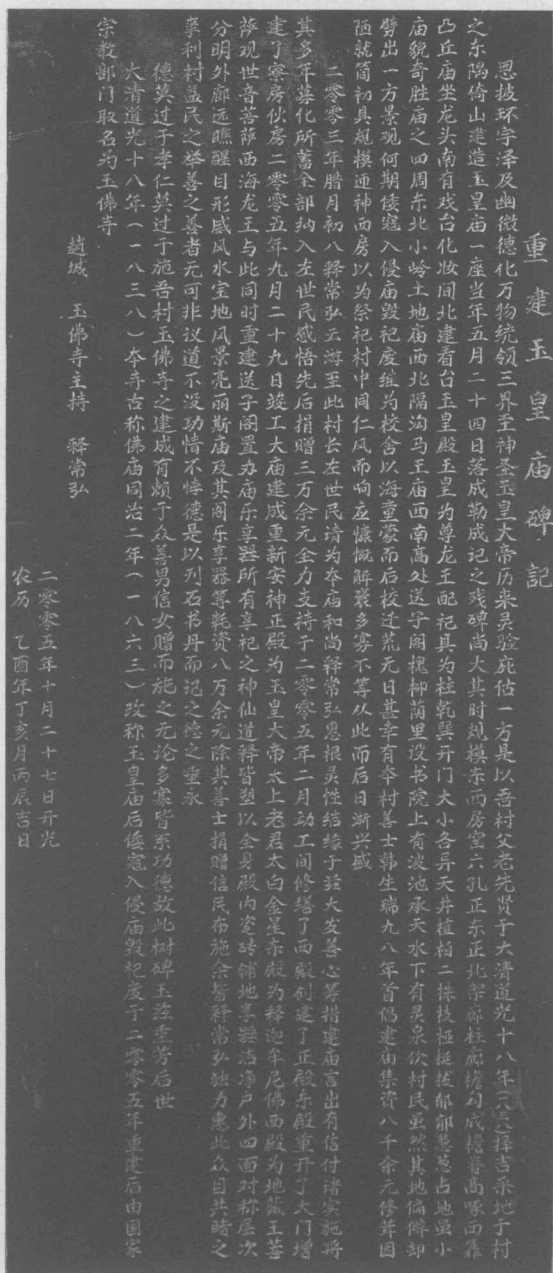 重建玉皇庙碑记
恩披环宇泽及幽微德化万物统领三界至神圣玉皇大帝历来灵验庇估一方是以吾村父老先贤于大清道光十八年(一八三八)择吉采地于村
之东隅倚山建造玉皇庙一座当年五月二十四日落成勒成记之残碑尚大其时规模东西房窑六孔正东正北架廊柱廊檐勾成檐替高啄西靠
凸丘庙坐龙头南有戏台化妆间北建看台玉皇殿玉皇为尊龙王配祀具为柱乾巽开门大小各异天井植柏二株枝极挺拔郁郁葱葱占地虽小
庙貌奇胜庙之四周东北小岭土地庙西北隔沟马王庙西南高处送子阁槐柳荫里设书院上有波池承天水下有灵泉饮村民虽然其地偏僻却
劈出一方景观何期倭寇入侵庙毁祀废继为校舍以海童蒙而后校迁荒无日甚幸有本村善士韩生瑞九八年首倡建庙集资八千余元修葺因
陋就简初具规模通神西房以为祭祀村中同仁风而响应慷慨解囊多寡不等从此而后日渐兴盛
二零零三年腊月初八释常弘云游至此村长左世民请为本庙和尚释常弘恩根灵性结缘于兹大发善心筹措建庙言出有信付诸实施将
其多年募化所蓄全部纳入左世民感悟先后捐赠三万余元全力支持于二零零五年二月动工间修缮了西殿创建了正殿东殿重开了大门增
建了寮房伙房二零零五年九月二十九日竣工大庙建成重新安神正殿为玉皇大帝太上老君太白金星东殿为释迦牟尼佛西殿为地藏王菩
萨观世音菩萨西海龙王与此同时重建送子阁置办庙乐享器所有享祀之神仙道释皆塑以全身殿内瓷砖铺地享器洁净户外四面对称层次
分明外廊远瞧醒目形威风水宝地风景亮丽斯庙及其阁乐享器等耗资八万余元除其善士捐赠信民布施余皆释常弘独力惠此众目共睹之
享利村益民之举善之善者无可非议道不没功情不悖德是以列石书丹而记之德之垂永
德莫过于孝仁莫过于施吾村玉佛寺之建成有赖于众善男信女赠而施之无论多寡皆系功德故此树碑玉兹垂芳后世
大清道光十八年(一八三八)本寺古称佛庙同治二年(一八六三)改称玉皇庙后倭寇入侵庙毁祀废于二零零五年重建后由国家
宗教部门取名为玉佛寺
赵城 玉佛寺主持 释常弘
二零零五年十月二十七日开光
农历 乙酉年丁亥月丙辰吉日